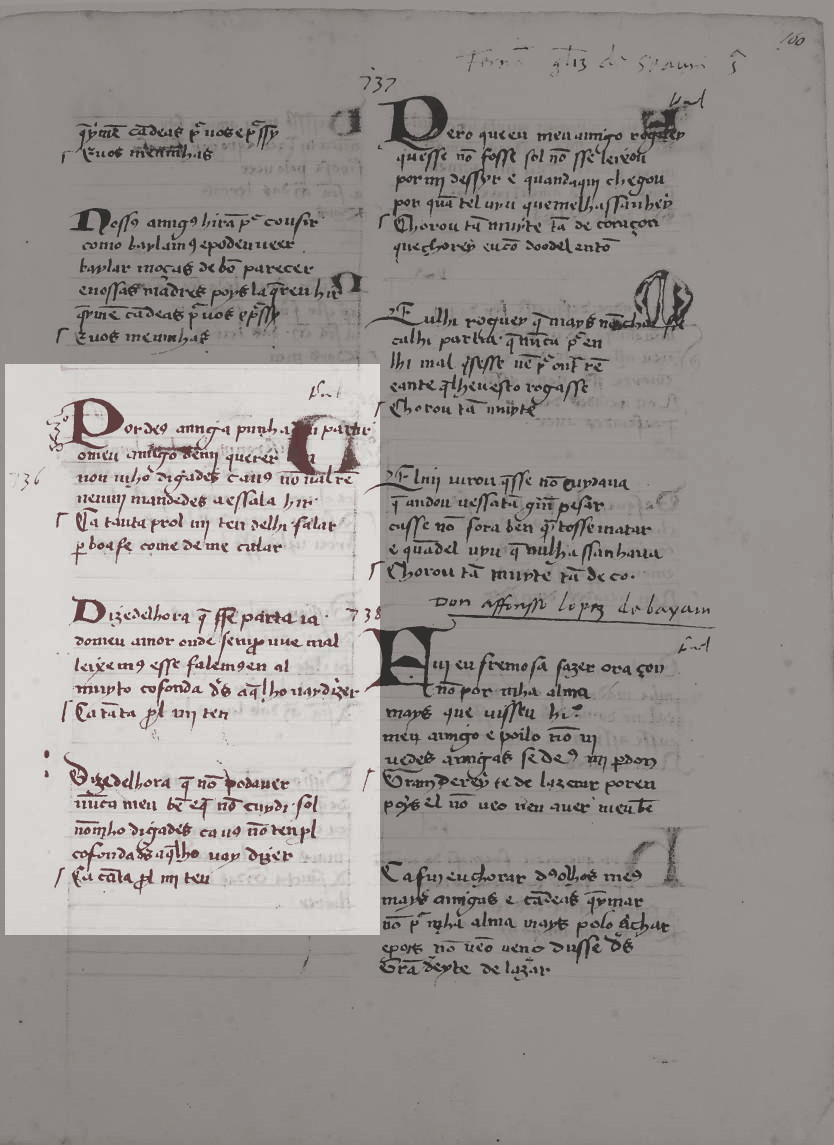 160
737
q̃ymẽ cãdeas pʳ uos e pʳssy
E uos meninhas
Nossꝯ amigꝯ hirã pʳ cousir
como baylamꝯ e podeu ueer
baylar moças de bõ parecer
e uossas madres poys la q̃reu hir
q̃ymẽ cãdeas pʳ uos e pʳssy
E uos meninhas
Por deꝯ amiga punha partir
o meu amigo demi querer
non uiho digades ca uꝯ nõ ual rẽ
nemmi mandedes a essa la hir
Ca tanta prol mi ten delhi falar
ꝑ boa fe come de me calar
736
Dizedelhora q̃ sse parta ia
do meu amor onde sempʳ uue mal
leixemꝯ esse falemꝯ en al
muyto cofonda dʳs aq̃lho uay dizer
Ca tãta pʳl mi ten
Dizedelhora q̃ nõ podauer
nũca meu bẽ e q̃ nõ cuydi sol
nõmho digades ca uꝯ nõ ten pl
cofonda dʳs aq̃lho uay dizer
Ca tãta pʳl mi ten
Pero que eu meu amigo roguey
quesse nõ fosse sol nõ sse leixou
por mi dessyr e quandaqui chegou
por quã tel uyu que mel hassanhey
Chorou tã muyte tã de coraçon
que chorey eu cõ doo del entõ
Eulhi roguey q̃ mays nõ
calhi parria q̃ nũca pʳ en
lhi mal q̃sesse nẽ pʳ outʳ rẽ
e ante q̃lheu esto rogasse
Chorou tã muyte
Elmi iurou q̃sse nõ cuydaua
q̃ andou uessatã gʳm pesar
casse nõ fora ben q̃ sse matar
e quãdel uyu q̃ mulhassanhaua
Chorou tã muyte tã de co.
Don affonsso lopez de bayam
738
Fui eu fremosa fazer oraçon
nõ por mha alma
mays que uisseu hi
meu amigo e poilo nõ ui
uedes amigas se deꝯ mi ꝑdon
Gram derey te de lazerar poren
poys el nõ ueo nen auer meu bẽ
Ca fui eu chorar dꝯ olhos meꝯ
mays amigas e cãdeas q̃ymar
nõ pʳ mha alma mays polo achar
e poys nõ ueo ueno dusse dʳs
Grã deyte de lazar